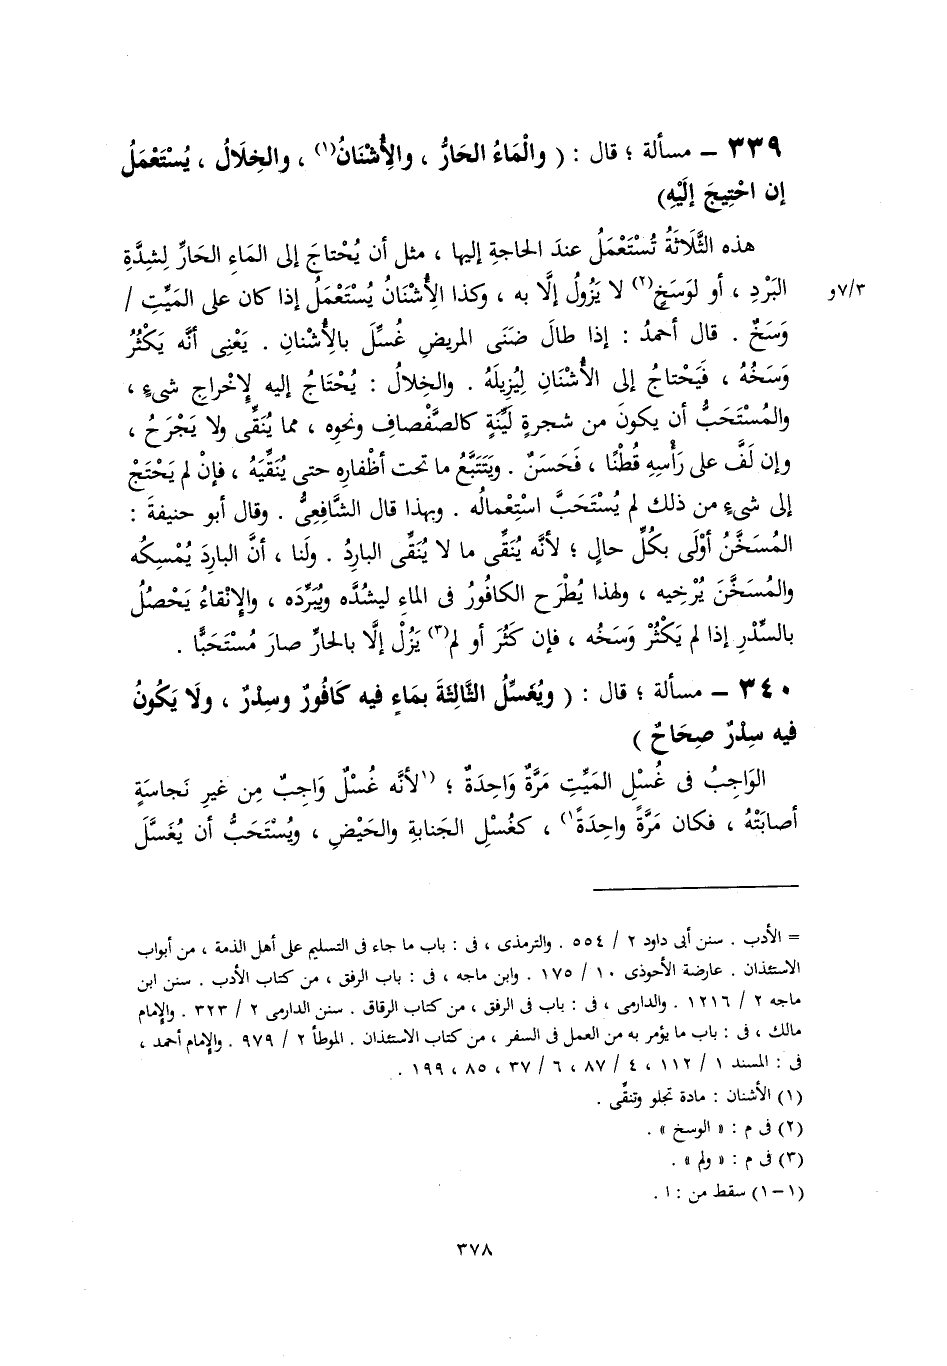 ٣٣٩ – مسألة ؛ قال : ( والْمَاءُ الحَارُّ ، والْأُشْنَانُ(١) ، والخِلَالُ ، يُسْتَعْمَلُ
إن احْتِيجَ إلَيْهِ)
هذه الثَّلَاثَةُ تُسْتَعْمَلُ عندَ الحاجةِ إليها ، مثل أن يُحْتاجَ إلى المَاءِ الحَارِّ لِشِدَّةِ
البَرْدِ ، أو لوَسَخٍ(٢) لا يَزُولُ إلَّا به ، وكذا الأُشْنَانُ يُسْتَعْمَلُ إذا كان على المَيِّتِ /
٧/٣و
وَسَخٌ . قال أحمدُ : إذا طالَ ضَنَى المريضِ غُسِّلَ بالأُشْنانِ . يَعْنِى أنَّه يَكْثُرُ
وَسَخُهُ ، فَيَحْتاجُ إلى الأُشْنَانِ لِيُزِيلَهُ . والخِلالُ : يُحْتَاجُ إليه لِإخْراجِ شىءٍ ،
والمُسْتَحَبُّ أن يكونَ من شجرةٍ لَيِّنَةٍ كالصَّفْصافِ ونحوِه ، مما يُنَقِّى ولا يَجْرَحُ ،
وإن لَفَّ على رَأْسِهِ قُطْنًا ، فَحَسَنٌ . ويَتَتَبَّعُ ما تحت أظْفارِه حتى يُنَقِّيَهُ ، فإنْ لم يَحْتَجْ
إلى شىءٍ من ذلك لم يُسْتَحَبَّ اسْتِعْمالُه . وبهذا قال الشَّافِعِىُّ . وقال أبو حنيفةَ :
المُسَخَّنُ أوْلَى بكُلِّ حالٍ ؛ لأنَّه يُنَقِّى ما لا يُنَقِّى البارِدُ . ولَنا ، أنَّ البارِدَ يُمْسِكُه
والمُسَخَّنَ يُرْخِيه ، ولهذا يُطْرَح الكافُورُ فى الماءِ ليشُدَّه ويُبَرِّدَه ، والإنْقاءُ يَحْصُلُ
بالسِّدْرِ إذا لم يَكْثُرْ وَسَخُه ، فإن كَثُرَ أو لم(٣) يَزُلْ إلَّا بالحارِّ صارَ مُسْتَحَبًّا .
٣٤٠ – مسألة ؛ قال : ( ويُغَسِّلُ الثَّالِثَةَ بمَاءٍ فيه كَافُورٌ وسِدْرٌ ، ولَا يَكُونُ
فيه سِدْرٌ صِحَاحٌ )
الوَاجِبُ فى غُسْلِ المَيِّتِ مَرَّةٌ وَاحِدَةٌ ؛ (١لأنَّه غُسْلٌ وَاجِبٌ مِن غيرِ نَجاسَةٍ
أصابَتْهُ ، فكان مَرَّةً واحِدَةً١) ، كغُسْلِ الجَنابةِ والحَيْضِ ، ويُسْتَحَبُّ أن يُغَسَّلَ
= الأدب . سنن أبى داود ٢ / ٥٥٤ . والترمذى ، فى : باب ما جاء فى التسليم على أهل الذمة ، من أبواب
الاستئذان . عارضة الأحوذى ١٠ / ١٧٥ . وابن ماجه ، فى : باب الرفق ، من كتاب الأدب . سنن ابن
ماجه ٢ / ١٢١٦ . والدارمى ، فى : باب فى الرفق ، من كتاب الرقاق . سنن الدارمى ٢ / ٣٢٣ . والإمام
مالك ، فى : باب ما يؤمر به من العمل فى السفر ، من كتاب الاستئذان . الموطأ ٢ / ٩٧٩ . والإمام أحمد ،
فى : المسند ١ / ١١٢ ، ٤ / ٨٧ ، ٦ / ٣٧ ، ٨٥ ، ١٩٩ .
(١) الأشنان : مادة تجلو وتنقِّى .
(٢) فى م : « الوسخ » .
(٣) فى م : « ولم » .
(١-١) سقط من : ا .
٣٧٨